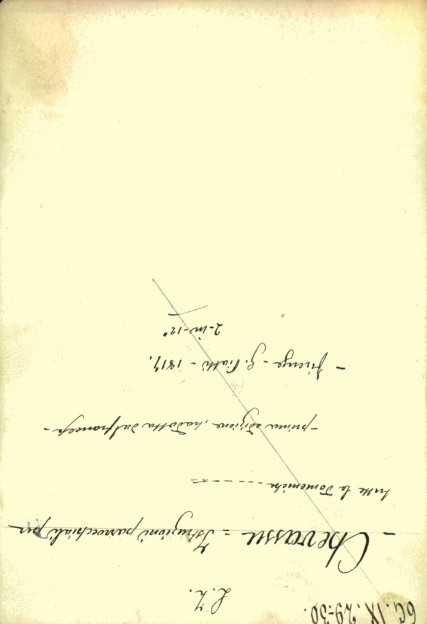 6G.IX.29-30.
L. Z.
- Chevassu = Istruzioni parrocchiali per
tutte le Domeniche -------
- prima edizione, tradotta dal francese -
- Firenze - G. Piatti - 1817.
2 - in - 12°